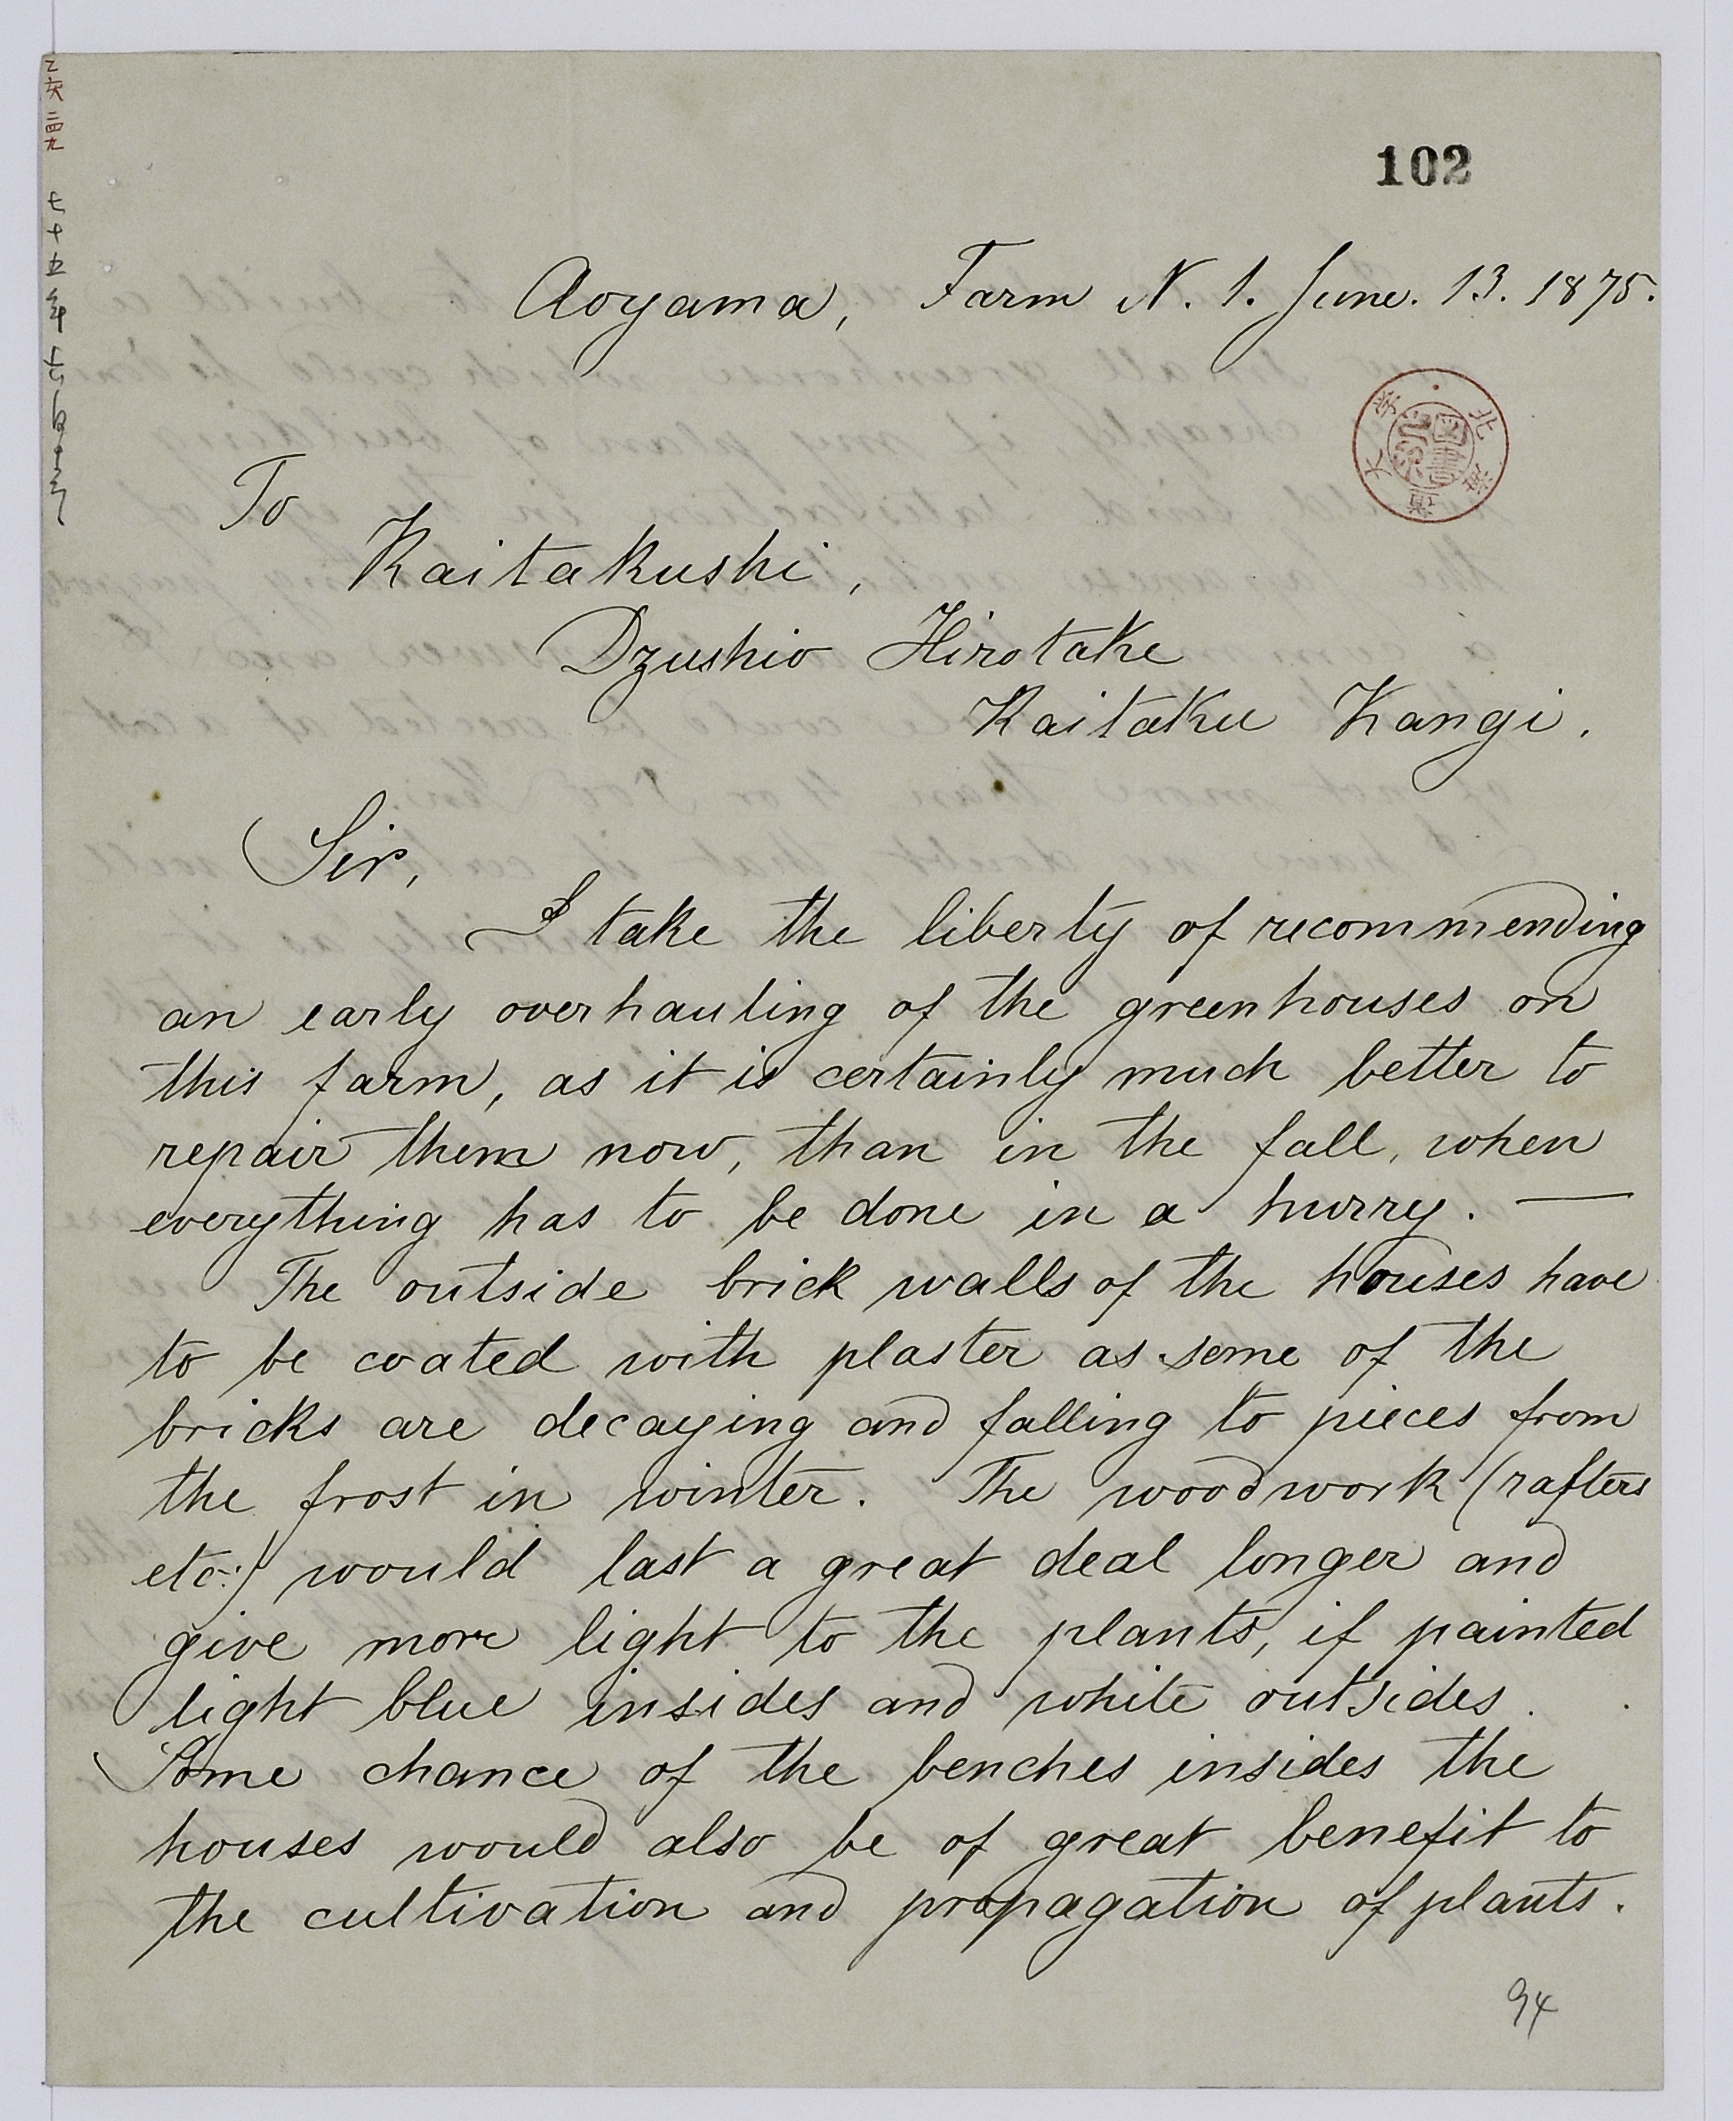 102
Aoyama, Farm N. 1. June. 13. 1875.
To
Kaitakushi,
Dzushio Hirotake
Kaitaku Kangi.
Sir,
I take the liberty of recommending
an early overhauling of the greenhouses on
this farm, as it is certainly much better to
repair them now, than in the fall, when
everything has to be done in a hurry. —
The outside brick walls of the houses have
to be coated with plaster as some of the
bricks are decaying and falling to pieces from
the frost in winter. The woodwork (rafters
etc:) would last a great deal longer and
give more light to the plants, if painted
light blue insides and white outsides.
Some chance of the benches insides the
houses would also be of great benefit to
the cultivation and propagation of plants.
94
乙亥二四九
七十五年六月十三
北海道大学
図書